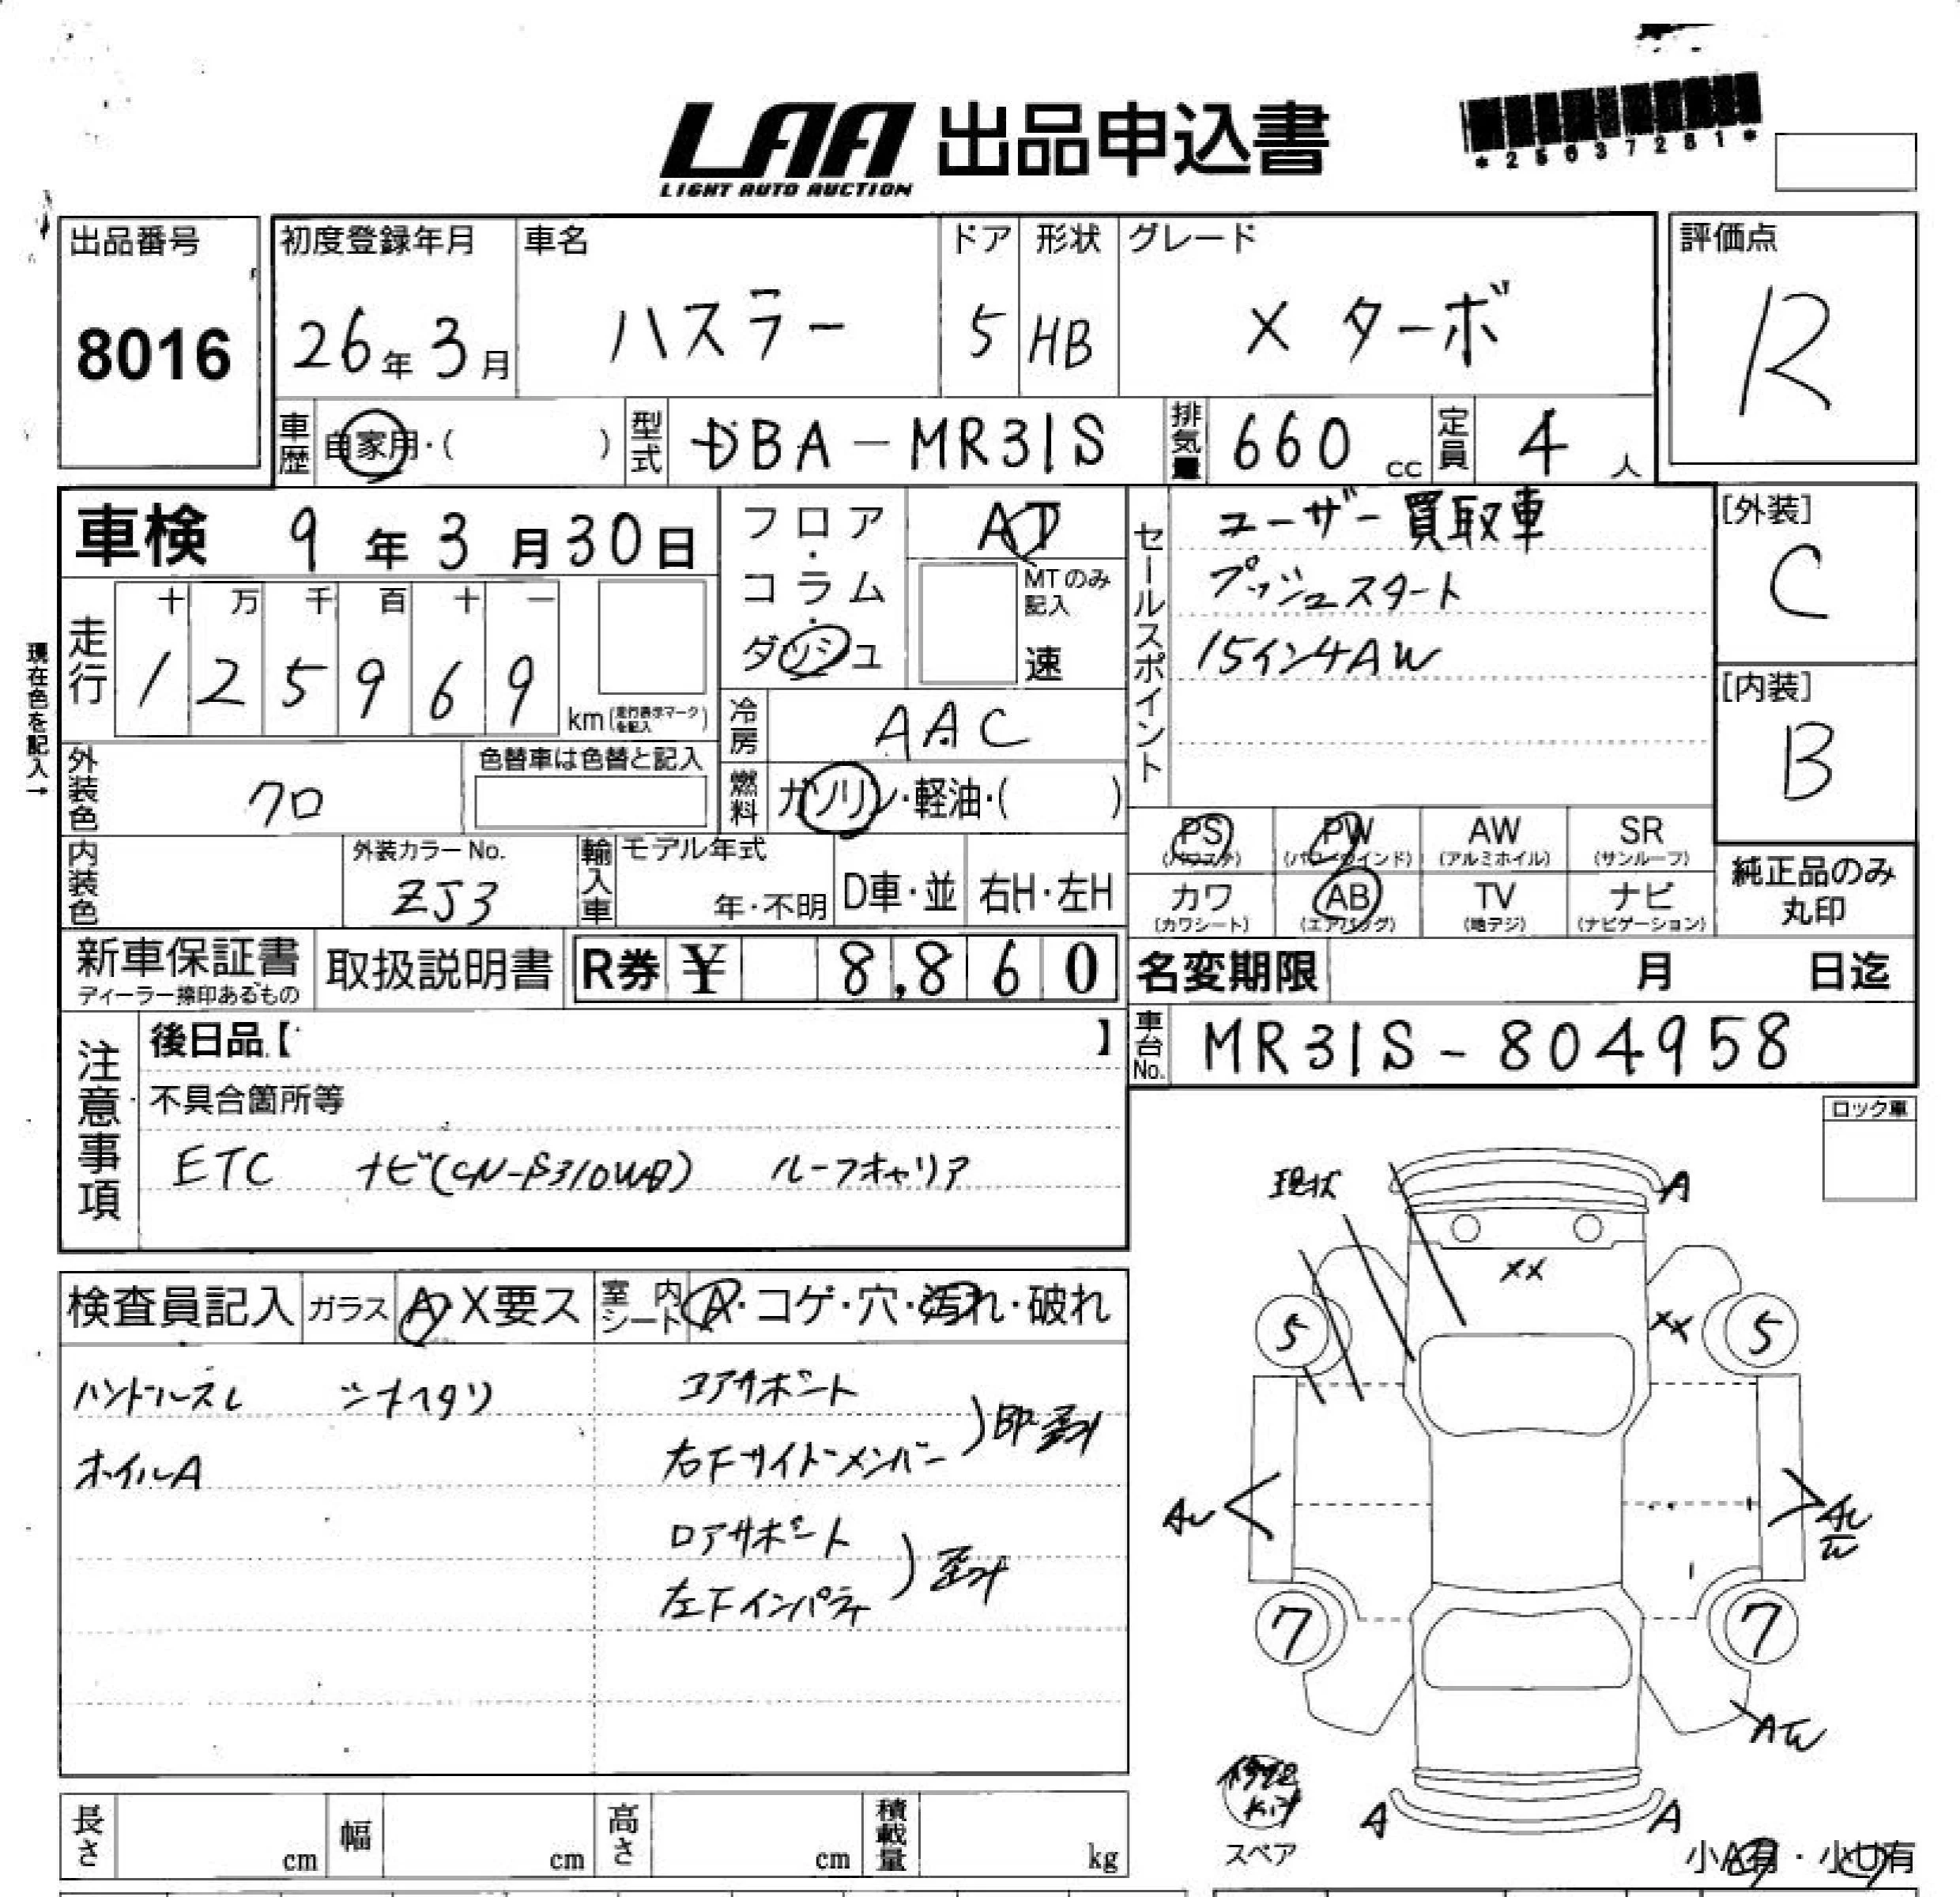 LAA 出品申込書
LIGHT AUTO AUCTION
*25637281*
出品番号
8016
初度登録年月
26年3月
車名
ハスラー
ドア
5
形状
HB
グレード
X ターボ
評価点
R
車歴
自家用・( )
型式
DBA-MR31S
排気量
660 cc
定員
4人
車検 9年3月30日
フロア・コラム・ダッシュ
AT
MTのみ記入
速
セールスポイント
ユーザー買取車
プッシュスタート
15インチAW
[外装]
C
[内装]
B
現在色を記入→
走行
十万千百十一
125969
km(走行表示マークを記入)
冷房
AAC
外装色
クロ
色替車は色替と記入
燃料
ガソリン・軽油・( )
PS
(パワステ)
PW
(パワーウインド)
AW
(アルミホイル)
SR
(サンルーフ)
内装色
外装カラーNo.
ZJ3
輸入車
モデル年式
年・不明
D車・並
右H・左H
カワ
(カワシート)
AB
(エアバッグ)
TV
(地デジ)
ナビ
(ナビゲーション)
純正品のみ
丸印
新車保証書
ディーラー捺印あるもの
取扱説明書
R券 ¥ 8,860
名変期限 月 日迄
注意事項
後日品【 】
車台No.
MR31S-804958
不具合箇所等
ETC ナビ(CN-B310WD) ルーフキャリア
ロック車
検査員記入
ガラス
A・X要ス
室内
シート
A・コゲ・穴・汚れ・破れ
ハンドルスレ
コアサポート
右下サイドメンバー
ホイルA
ロアサポート
左下インパネ
歪み
現状
A
XX
XX
5
5
7
7
A
A
スペア
小A有・小U有
長さ cm
幅 cm
高さ cm
積載量 kg